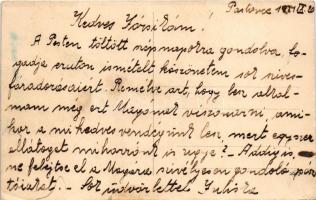 Kedves Hársikám!
A Pesten töltött napi napokra gondolva, fo-
gadja ezuton ismételt köszönetem sok szives
fáradozásaiért. Remélve azt, hogy lesz alkal-
mam még ezt Magának viszonozni, ami-
kor a mi kedves vendégünk lesz, mert egyszer
ellátogat mihozzánk is ugye? - Addig is,
ne felejtse el a Magára szivélyesen gondoló
- Sok üdvözlettel Juliska